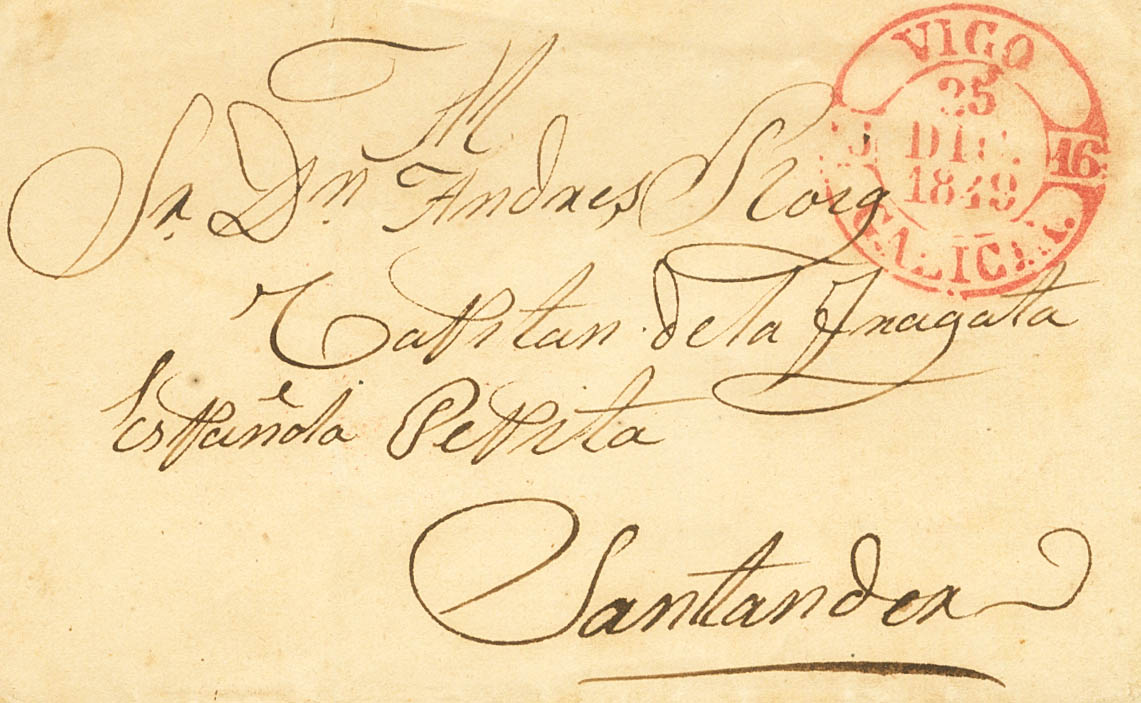 M
Sr. Dn. Andres Roig
Capitan de la Fragata
Española Pepita
Santander
VIGO
25
DIC.
1849
16
GALICIA.